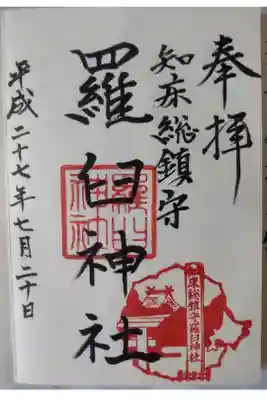 奉拝
知床総鎮守
羅臼神社
平成二十七年七月二十日
羅臼神社
知床総鎮守羅臼神社